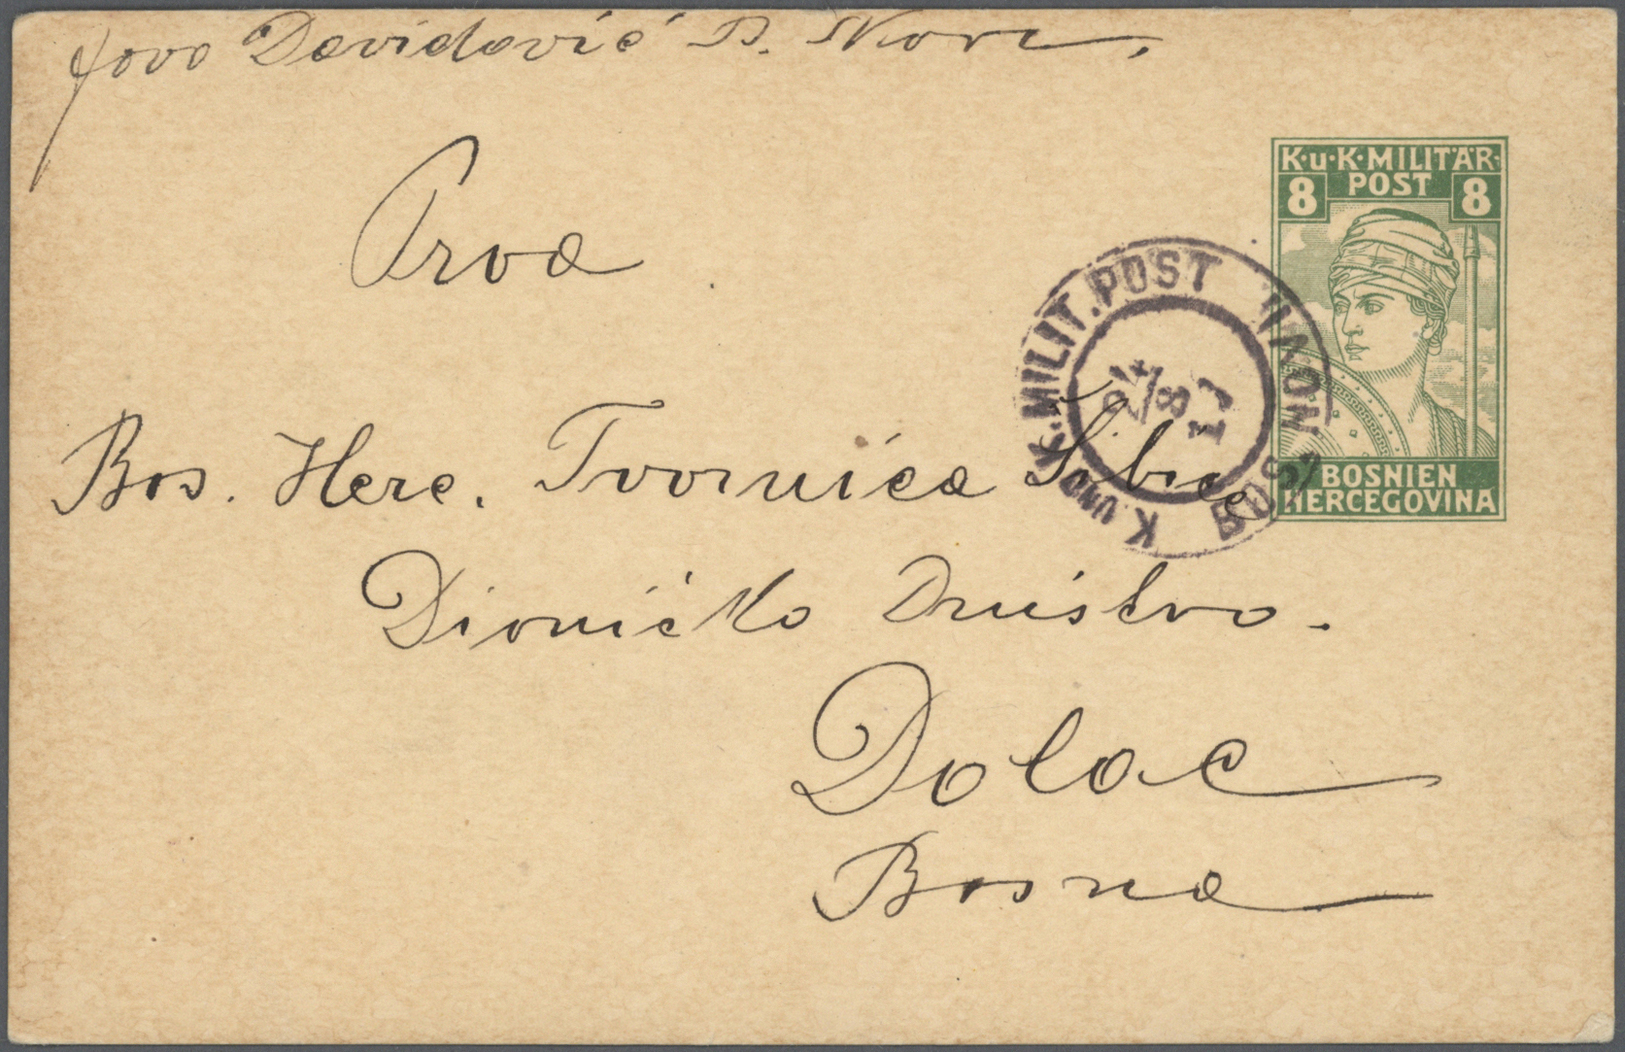 Jovo Davidović B. Novi,
K·u·K·MILITÄR·
POST
8 8
Prva
K. UND K. MILIT. POST BOS. NOVI
24
8
17
Bos. Herc. Tvornica Žibice
BOSNIEN
HERCEGOVINA
Dioničko Društvo.
Dolac
Bosna